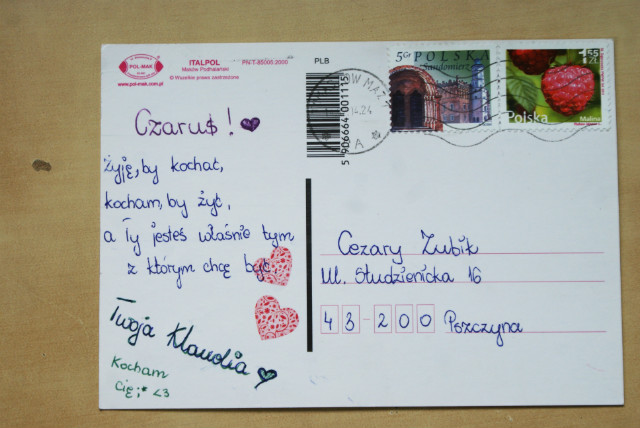 POL-MAK
www.pol-mak.com.pl
ITALPOL
Maków Podhalański
© Wszelkie prawa zastrzeżone
PN-T-85005:2000
PLB
5 906664 001115
50
POLSKA
Sandomierz
1,55 ZŁ
Polska
Malina
A
Czaruś!
Żyję, by kochać,
kocham, by żyć,
a Ty jesteś właśnie tym
z którym chcę być.
Twoja Klaudia
Kocham
Cię ;* <3
Cezary Zubik
Ul. Studzienicka 16
43-200 Pszczyna